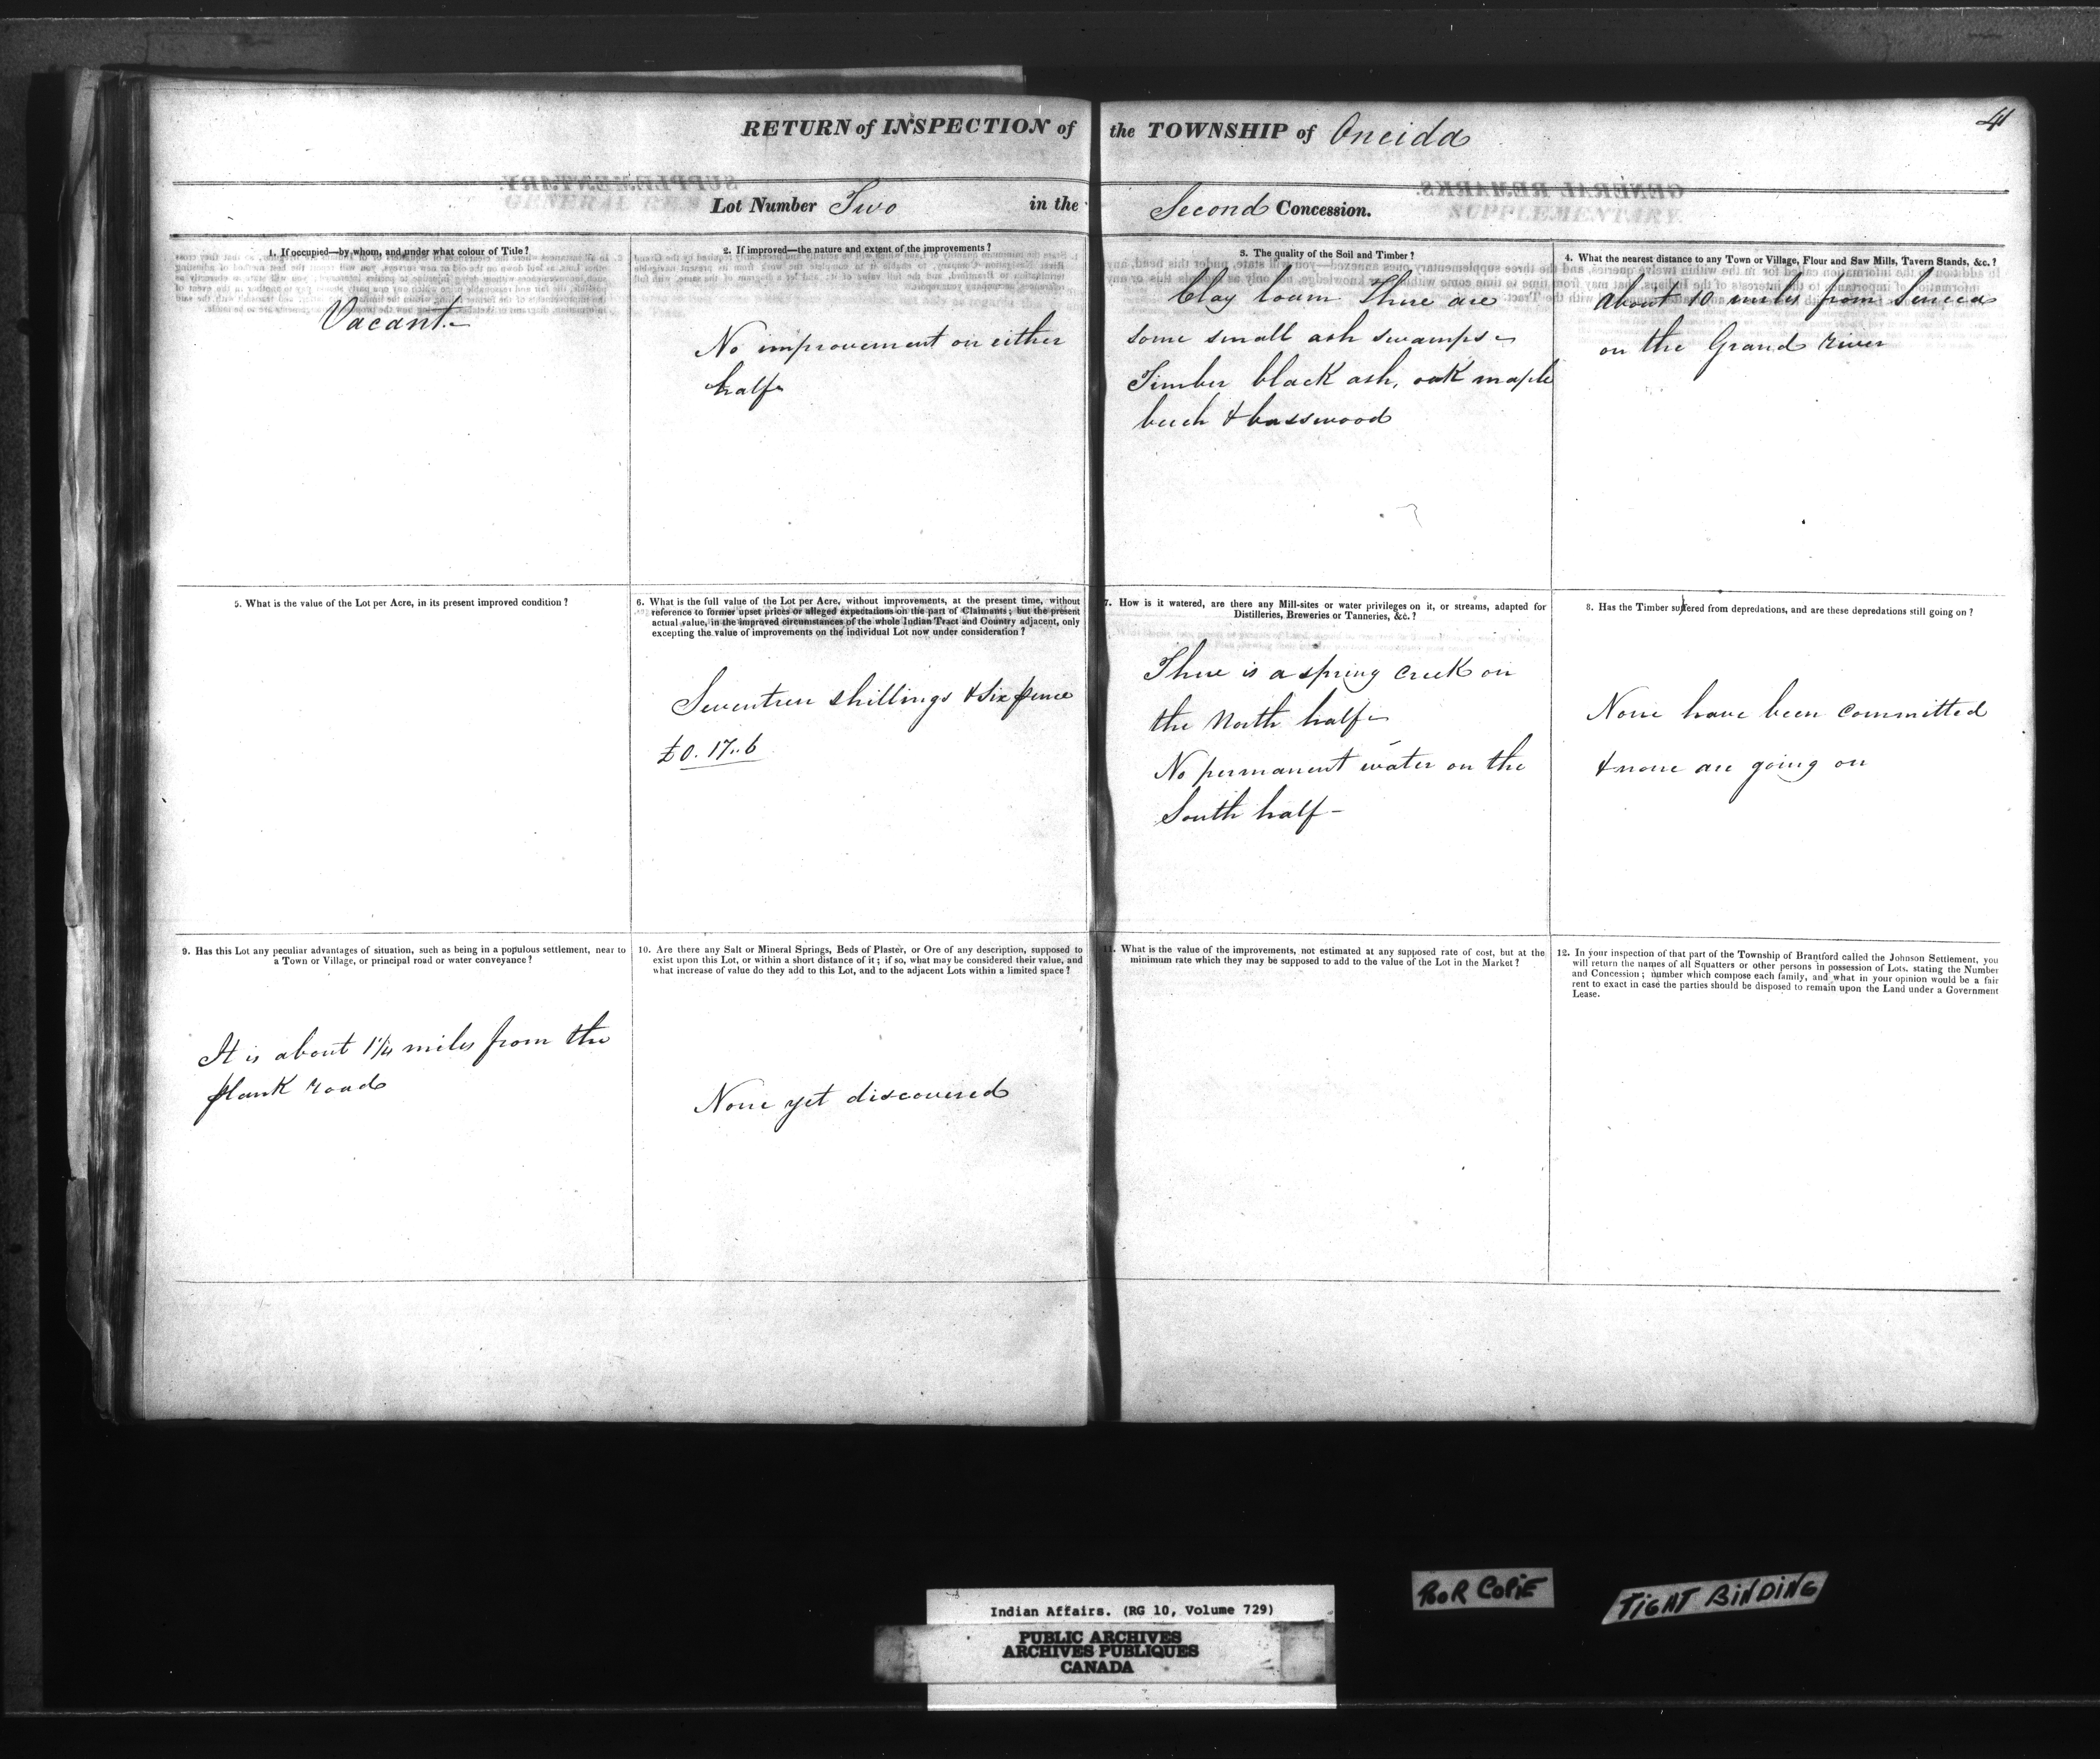 41
RETURN of INSPECTION of the TOWNSHIP of Oneida
Lot Number Two in the Second Concession.
1. If occupied—by whom, and under what colour of Title?
Vacant.—
2. If improved—the nature and extent of the improvements?
No improvement on either
half
3. The quality of the Soil and Timber?
Clay loam There are
some small ash swamps
Timber black ash, oak maple
beech & basswood
4. What the nearest distance to any Town or Village, Flour and Saw Mills, Tavern Stands, &c.?
about 10 miles from Seneca
on the Grand river
5. What is the value of the Lot per Acre, in its present improved condition?
6. What is the full value of the Lot per Acre, without improvements, at the present time, without
reference to former upset prices or alleged expectations on the part of Claimants; but the present
actual value, in the improved circumstances of the whole Indian Tract and Country adjacent, only
excepting the value of improvements on the individual Lot now under consideration?
Seventeen shillings & six pence
£0. 17..6
7. How is it watered, are there any Mill-sites or water privileges on it, or streams, adapted for
Distilleries, Breweries or Tanneries, &c.?
There is a spring creek on
the North half
No permanent water on the
South half—
8. Has the Timber suffered from depredations, and are these depredations still going on?
None have been committed
& none are going on
9. Has this Lot any peculiar advantages of situation, such as being in a populous settlement, near to
a Town or Village, or principal road or water conveyance?
It is about 1¼ miles from the
plank road
10. Are there any Salt or Mineral Springs, Beds of Plaster, or Ore of any description, supposed to
exist upon this Lot, or within a short distance of it; if so, what may be considered their value, and
what increase of value do they add to this Lot, and to the adjacent Lots within a limited space?
None yet discovered
11. What is the value of the improvements, not estimated at any supposed rate of cost, but at the
minimum rate which they may be supposed to add to the value of the Lot in the Market?
12. In your inspection of that part of the Township of Brantford called the Johnson Settlement, you
will return the names of all Squatters or other persons in possession of Lots, stating the Number
and Concession; number which compose each family, and what in your opinion would be a fair
rent to exact in case the parties should be disposed to remain upon the Land under a Government
Lease.
POOR COPIE
TIGHT BINDING
Indian Affairs. (RG 10, Volume 729)
PUBLIC ARCHIVES
ARCHIVES PUBLIQUES
CANADA